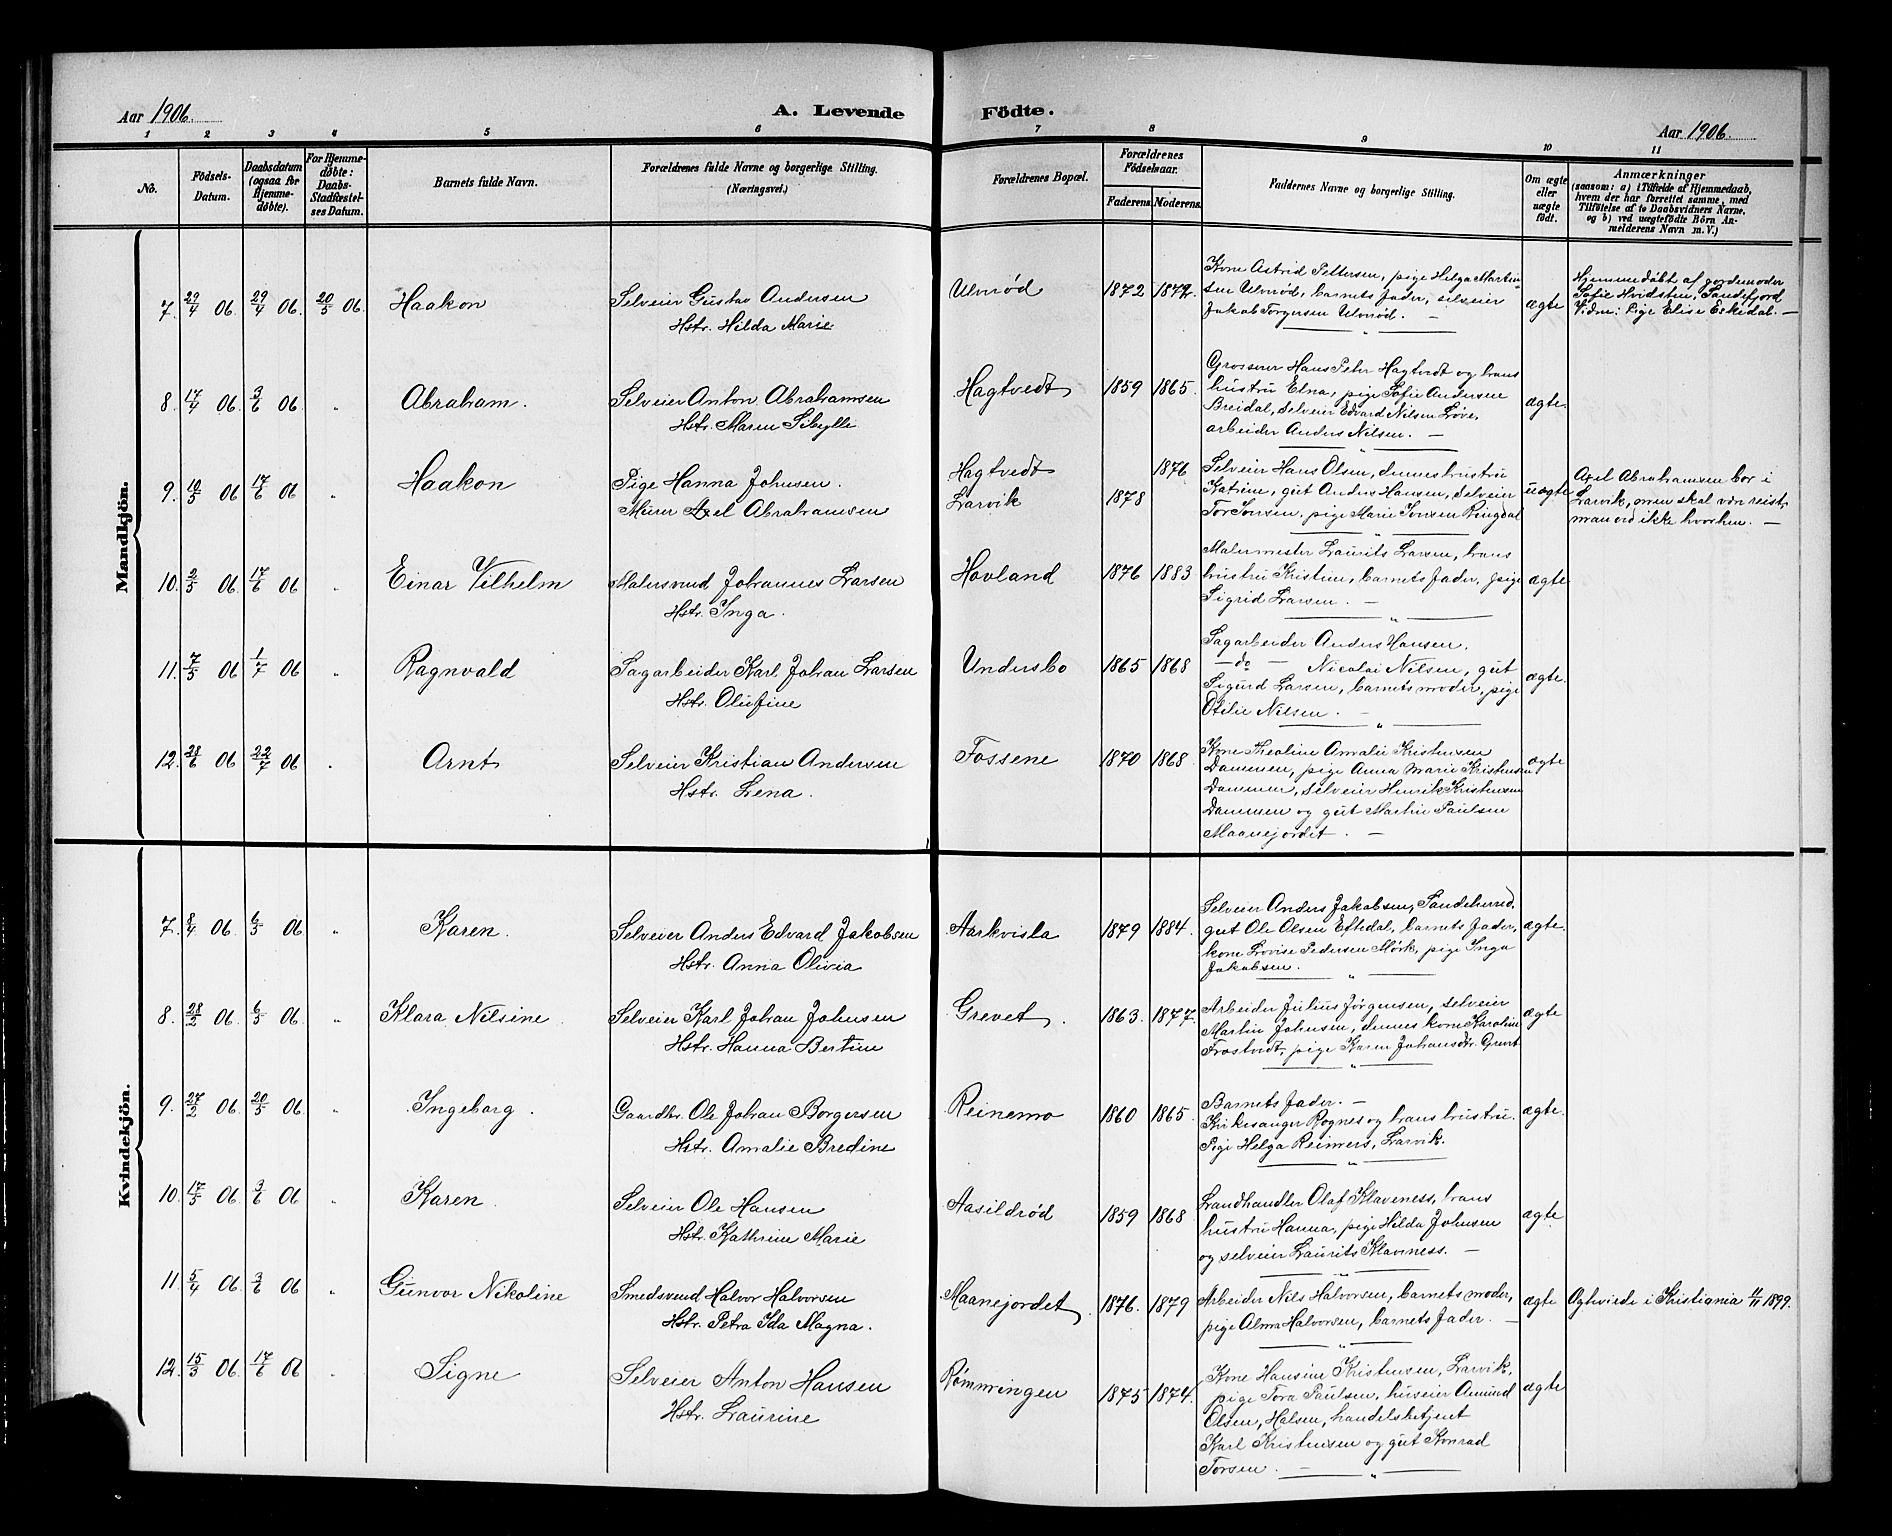 Aar 1906.
A. Levende
Födte.
Aar 1906.
1 2 3 4 5 6 7 8 9 10 11
No.
Födsels-
Datum.
Daabsdatum
(ogsaa for
Hjemme-
døbte).
For Hjemme-
døbte:
Daabs-
Stadfæstel-
ses Datum.
Barnets fulde Navn.
Forældrenes fulde Navne og borgerlige Stilling.
(Næringsvei.)
Forældrenes Bopæl.
Forældrenes
Födselsaar.
Faderens. Moderens.
Faddernes Navne og borgerlige Stilling.
Om ægte
eller
uægte
födt.
Anmærkninger
(saasom: a) i Tilfælde af Hjemmedaab,
hvem der har forrettet samme, med
Tilföielse af to Daabsvidners Navne,
og b) ved uægtefödte Börn An-
melderens Navn m. V.)
Mandkjön.
7. 29/4 06. 29/4 06. 20/5 06. Haakon
Selveier Gustav Andersen
Hstr. Hilda Marie
Ulvrød 1872 1872.
Kone Astrid Pettersen, pige Helga Martin-
sen Ulvrød, barnets fader, selveier
Jakob Torgersen Ulvrød. —
ægte
Hjemmedøbt af gordemoder
Sofie Hvidsten, Sandefjord
Vidne: Pige Elise Eskedal. —
8. 17/4 06. 3/6 06 " Abraham.
Selveier Anton Abrahamsen
Hstr. Maren Sibylle
Hagtvedt 1859 1865.
Grosserer Hans Peter Hagtvedt og hans
hustru Elna, pige Sofie Andersen
Breidal, selveier Edvard Nilsen Løve,
arbeider Anders Nilsen. —
ægte.
9. 10/5 06 17/6 06 " Haakon
Pige Hanna Johnsen.
Murer Axel Abrahamsen
Hagtvedt 1876
Larvik 1878
Selveier Hans Olsen, dennes hustru
Katrine, gut Anders Hansen, selveier
Tor Torsen, pige Marie Jonsen Ringdal
uægte
Axel Abrahamsen bor i
Larvik, men skal være reist,
man ved ikke hvorhen. —
10. 2/5 06 17/6 06 " Einar Vilhelm
Malersvend Johannes Larsen
Hstr. Inga.
Hovland 1876 1883
Malermester Laurits Larsen, hans
hustru Kristine, barnets fader, pige
Sigrid Larsen. —
ægte
11. 7/5 06 1/7 06 " Ragnvald
Sagarbeider Karl Johan Larsen
Hstr. Olufine
Undersbo 1865 1868
Sagarbeider Anders Hansen.
— do — Nicolai Nilsen, gut
Sigurd Larsen, barnets moder, pige
Otilie Nilsen. —
ægte.
12. 28/6 06 22/7 06 " Arnt
Selveier Kristian Andersen
Hstr. Lena.
Fossene 1870 1868.
Kone Theoline Amalie Kristensen
Dammen, pige Anna Marie Kristensen
Dammen, selveier Henrik Kristensen
Dammen og gut Martin Paulsen
Maanejordet. —
ægte
Kvindekjön.
7. 8/4 06. 6/5 06 " Karen.
Selveier Anders Edvard Jakobsen
Hstr. Anna Olivia
Aarkvisla 1879 1884.
Selveier Anders Jakobsen, Sandeherred,
gut Ole Olsen Eftedal, barnets fader,
kone Lovise Pedersen Mørk, pige Inga
Jakobsen.
ægte.
8. 28/2 06 6/5 06 " Klara Nilsine
Selveier Karl Johan Johnsen
Hstr. Hanna Bertine
Grevet. 1863. 1877.
Arbeider Julius Jørgensen, selveier
Martin Johnsen, dennes kone Karoline
Frostvedt, pige Karen Johansdtr. Grevet
ægte
9. 27/2 06. 20/5 06 " Ingeborg.
Gaardbr. Ole Johan Borgersen
Hstr. Amalie Bredine
Reinemo 1860 1865.
Barnets fader. —
Kirkesanger Rognes og hans hustru.
Pige Helga Reimers, Larvik.
ægte.
10. 17/3 06. 3/6 06 " Karen
Selveier Ole Hansen
Hstr. Kathrine Marie
Aasildrød 1859 1868
Landhandler Olaf Klaveness, hans
hustru Hanna, pige Hilda Johnsen
og selveier Laurits Klaveness. —
ægte
11. 5/4 06. 3/6 06 " Gunvor Nikoline
Smedsvend Halvor Halvorsen
Hstr. Petra Ida Magna.
Maanejordet. 1876. 1879
Arbeider Nils Halvorsen, barnets moder,
pige Alma Halvorsen, barnets fader. —
ægte
Ægteviede i Kristiania 11/11 1899.
12. 15/3 06. 17/6 06 " Signe
Selveier Anton Hansen
Hstr. Laurine
Rømmringen 1875 1874.
Kone Hansine Kristensen, Larvik,
pige Tora Paulsen, huseier Amund
Olsen, Halsen, handelsbetjent
Karl Kristensen og gut Konrad
Torsen. —
ægte